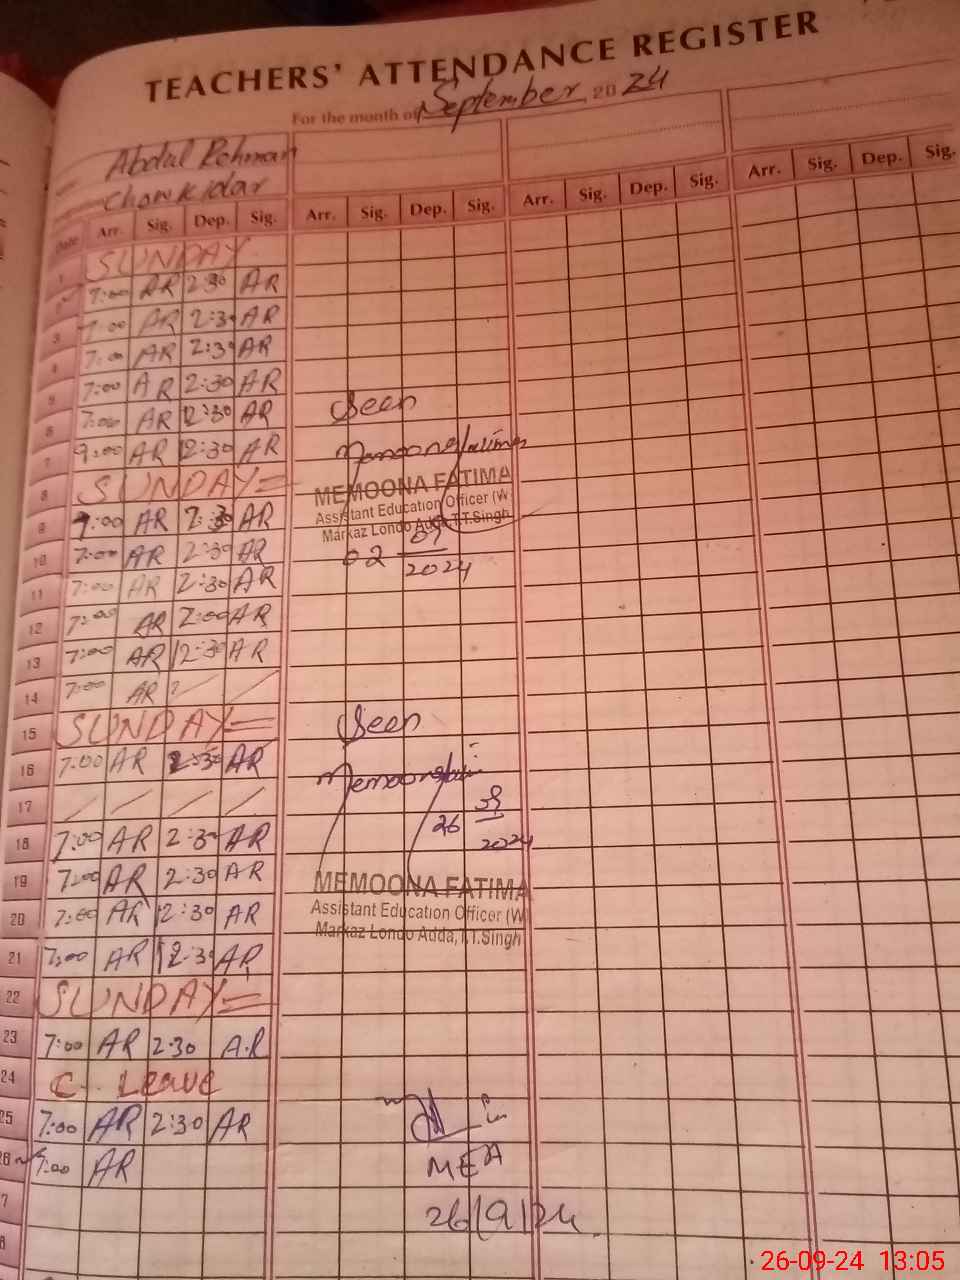 TEACHERS' ATTENDANCE REGISTER
For the month of September, 2024
Abdul Rehman
Chowkidar
Date Arr. Sig. Dep. Sig. Arr. Sig. Dep. Sig. Arr. Sig. Dep. Sig. Arr. Sig. Dep. Sig.
1 SUNDAY
7:00 AR 2:30 AR
3 7:00 AR 2:30 AR
4 7:00 AR 2:30 AR
5 7:00 AR 2:30 AR
6 7:00 AR 12:30 AR Seen
7 9:00 AR 12:30 AR
8 SUNDAY = MEMOONA FATIMA
9 7:00 AR 2:30 AR Assistant Education Officer (W)
Markaz Londo Adda, T.T.Singh
10 7:00 AR 2:30 AR 02 09
2024
11 7:00 AR 2:30 AR
12 7:00 AR 2:00 AR
13 7:00 AR 12:30 AR
14 7:00 AR
15 SUNDAY = Seen
16 7:00 AR 2:30 AR
17 / / / /
18 7:00 AR 2:30 AR 26 09
2024
19 7:00 AR 2:30 AR MEMOONA FATIMA
20 7:00 AR 12:30 AR Assistant Education Officer (W)
Markaz Londo Adda, T.T.Singh
21 7:00 AR 12:30 AR
22 SUNDAY =
23 7:00 AR 2:30 A.R
24 C. Leave
25 7:00 AR 2:30 AR
26 7:00 AR MEA
7 26/9/24
8
26-09-24 13:05